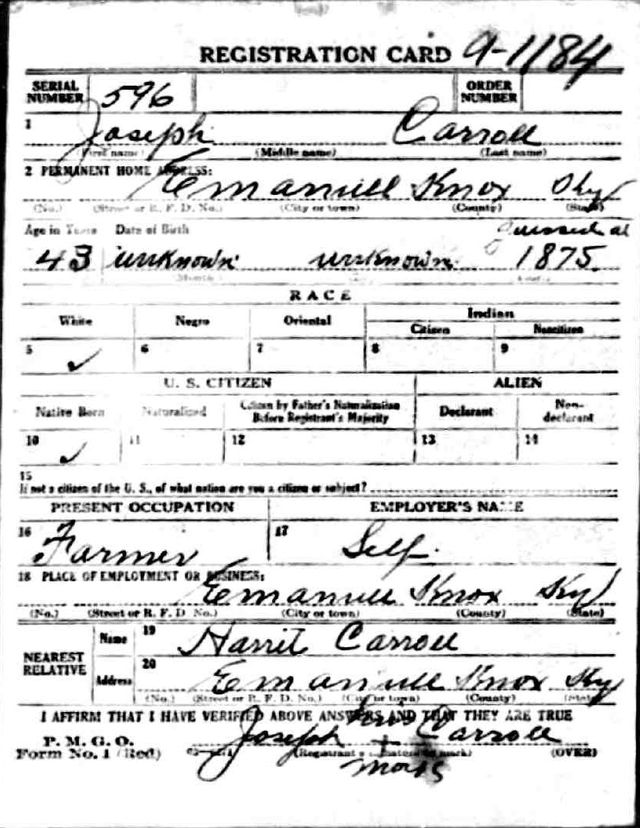 REGISTRATION CARD 9-1184
SERIAL NUMBER 596 ORDER NUMBER
1 Joseph Carroll
(First name) (Middle name) (Last name)
2 PERMANENT HOME ADDRESS:
Emanuell Knox Sky
(No.) (Street or R. F. D. No.) (City or town) (County) (State)
Age in Years Date of Birth guessed at
43 unknown unknown 1875
(Month)
RACE
White Negro Oriental Indian
Citizen Noncitizen
5 ✓ 6 7 8 9
U. S. CITIZEN ALIEN
Native Born Naturalized Citizen by Father's Naturalization Before Registrant's Majority Declarant Non-declarant
10 ✓ 11 12 13 14
15
If not a citizen of the U. S., of what nation are you a citizen or subject?
PRESENT OCCUPATION EMPLOYER'S NAME
16 Farmer 17 Self.
18 PLACE OF EMPLOYMENT OR BUSINESS:
Emanuell Knox Sky
(No.) (Street or R. F. D. No.) (City or town) (County) (State)
NEAREST RELATIVE
Name 19 Harrit Carroll
Address 20 Emanuell Knox Sky
(No.) (Street or R. F. D. No.) (City or town) (County) (State)
I AFFIRM THAT I HAVE VERIFIED ABOVE ANSWERS AND THAT THEY ARE TRUE
P. M. G. O.
Form No. 1 (Red)
Joseph his + Carroll
(Registrant's signature or mark) (OVER)
mark